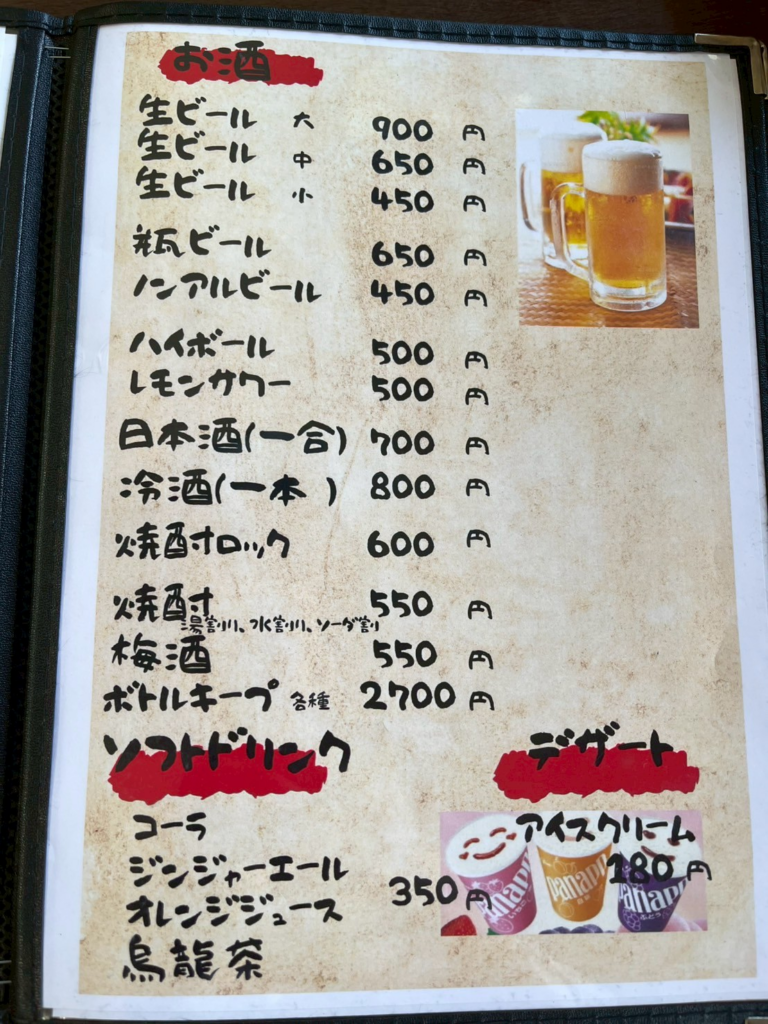 お酒
生ビール 大 900 円
生ビール 中 650 円
生ビール 小 450 円
瓶ビール 650 円
ノンアルビール 450 円
ハイボール 500 円
レモンサワー 500 円
日本酒(一合) 700 円
冷酒(一本 ) 800 円
焼酎ロック 600 円
焼酎 550 円
湯割り、水割り、ソーダ割
梅酒 550 円
ボトルキープ 各種 2700 円
ソフトドリンク
コーラ
ジンジャーエール
オレンジジュース
烏龍茶
350 円
デザート
アイスクリーム
180 円
panapp
panapp